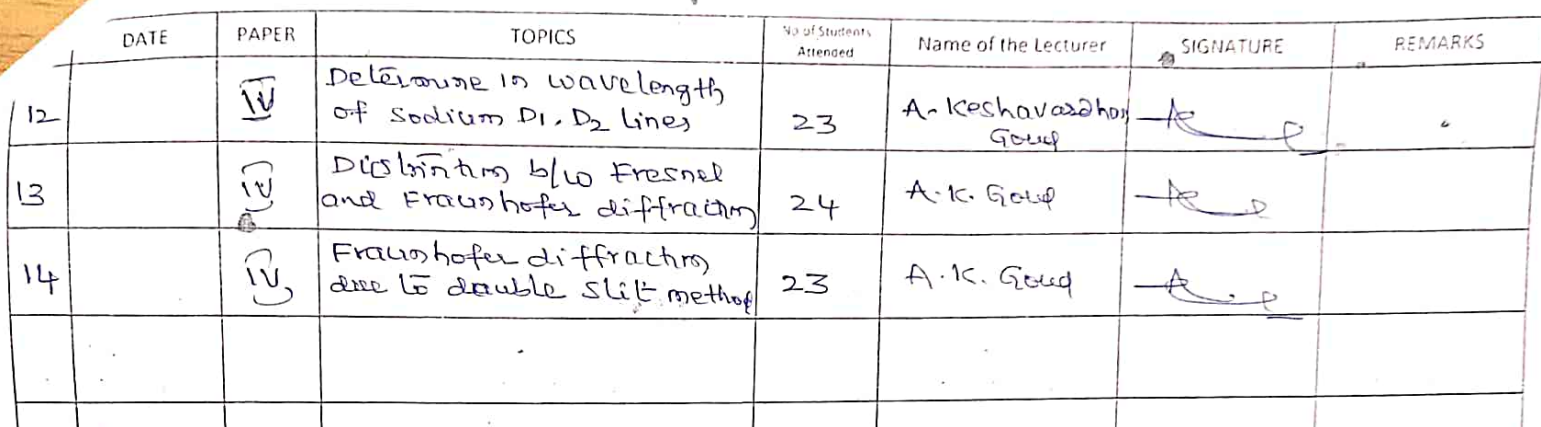 DATE PAPER TOPICS No of Students Attended Name of the Lecturer SIGNATURE REMARKS
12 IV Determine in wavelength
of Sodium D1, D2 Lines 23 A. Keshavardhan
Goud
13 IV b/w Fresnel
and Fraunhofer diffraction 24 A.K. Goud
14 IV Fraunhofer diffraction
due to double slit method 23 A.K. Goud